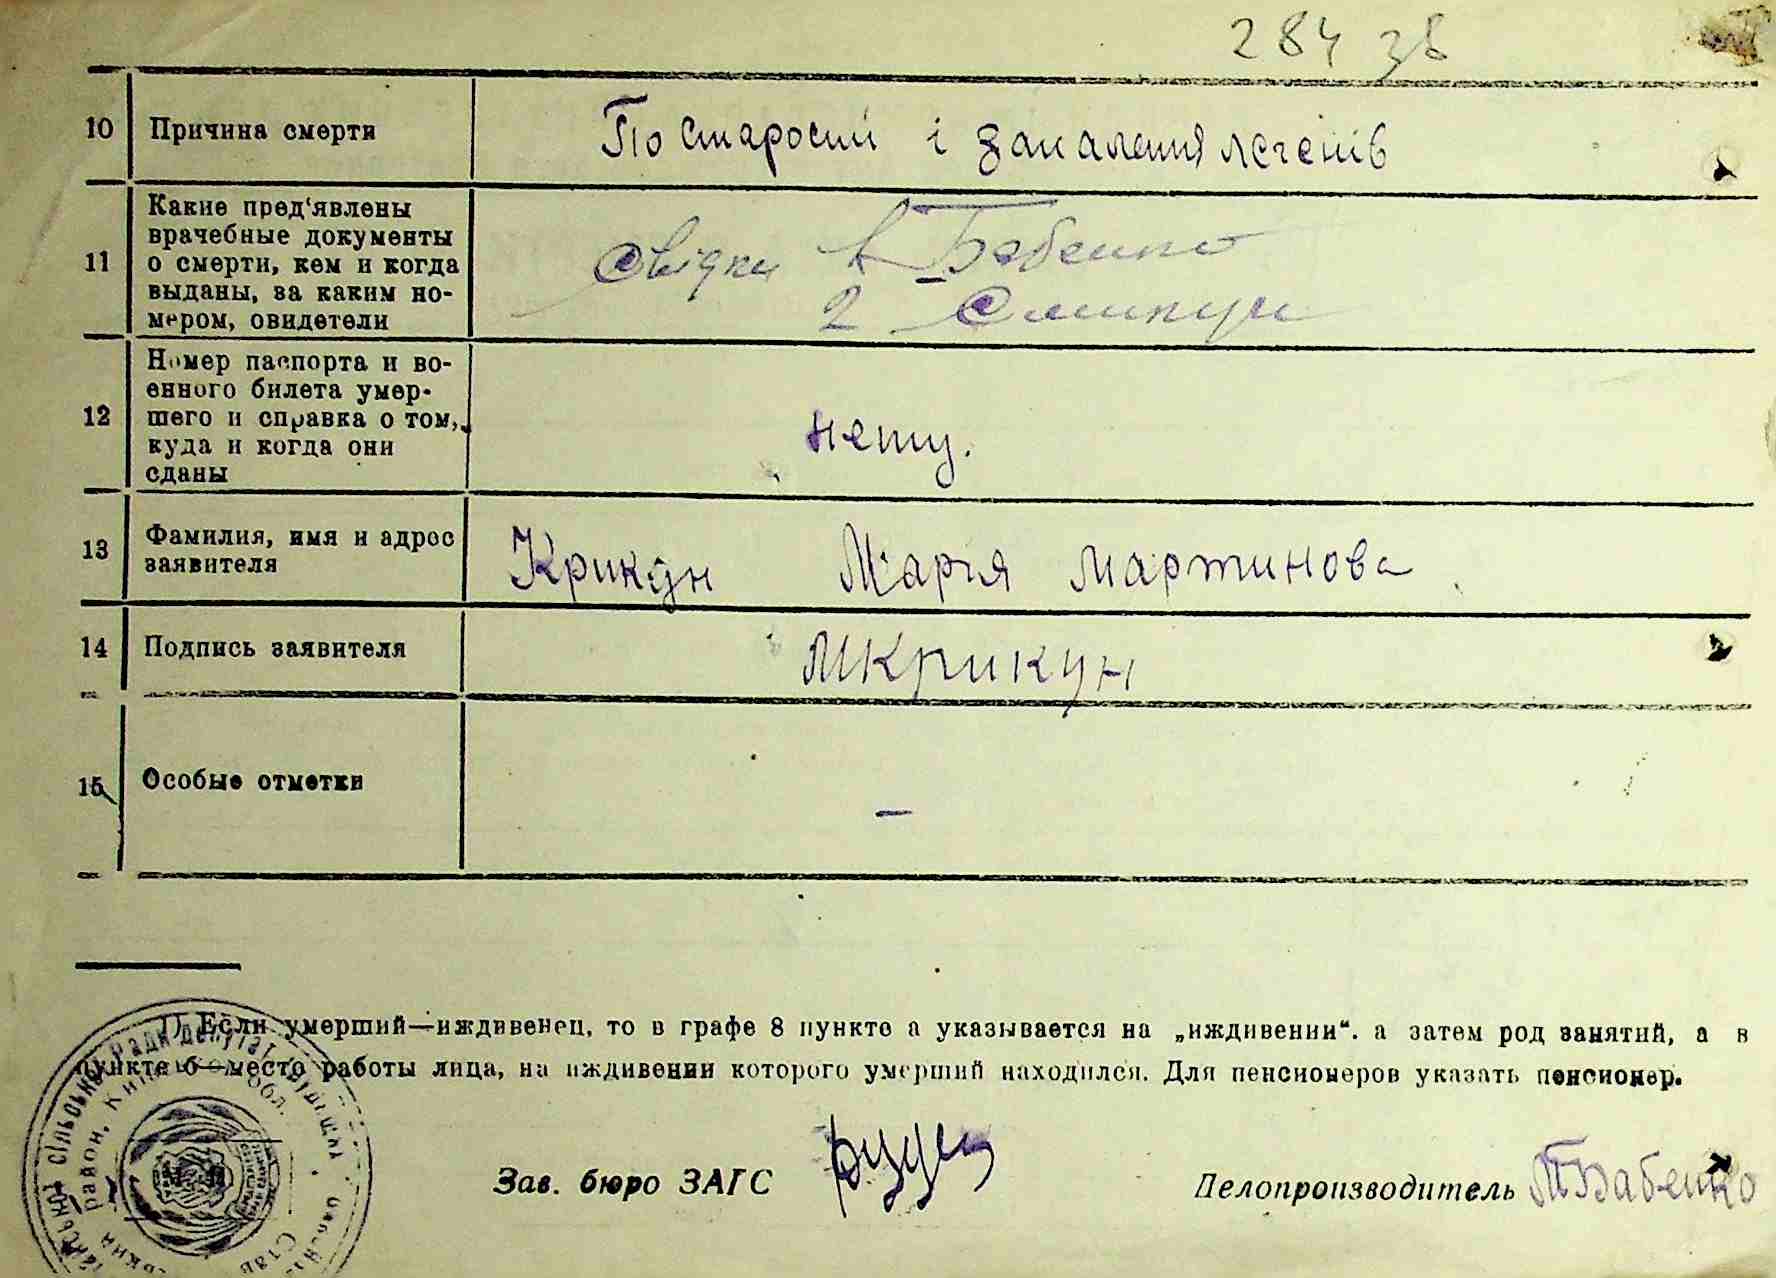 284 зв
10 Причина смерти По старости і запалення легенів
11 Какие пред‘явлены
врачебные документы
о смерти, кем и когда
выданы, за каким но-
мером, свидетели
Свідки 1 Бабенко
2
12 Номер паспорта и во-
енного билета умер-
шего и справка о том,
куда и когда они
сданы
нету.
13 Фамилия, имя и адрес
заявителя
Крикун Марія Мартинова
14 Подпись заявителя МКрикун
15 Особые отметки —
1) Если умерший—иждивенец, то в графе 8 пункте а указывается на „иждивении“. а затем род занятий, а в
пункте б—место работы лица, на иждивении которого умерший находился. Для пенсионеров указать пенсионер.
Зав. бюро ЗАГС
Делопроизводитель ТБабенко
сільської Ради депутатів трудящих
район,
обл.